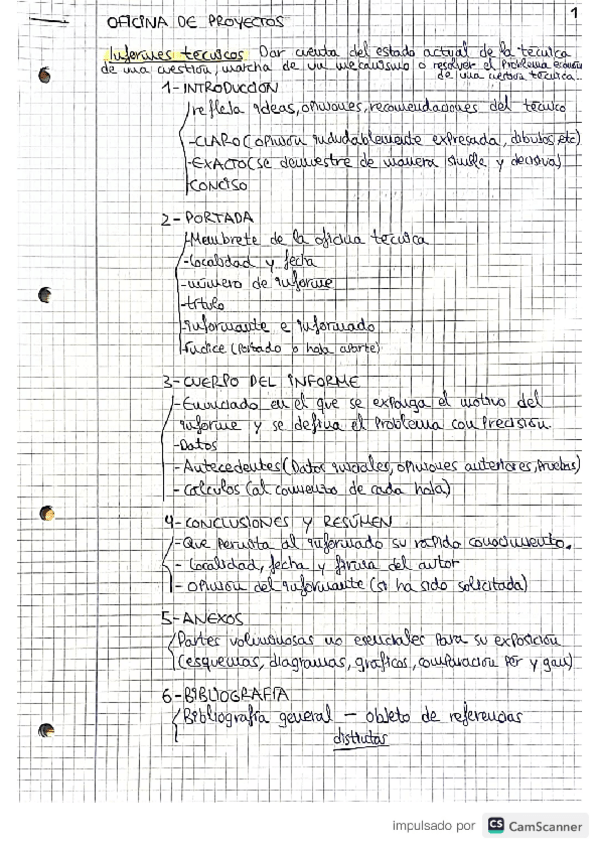 1
OFICINA DE PROYECTOS
Informes técnicos Dar cuenta del estado actual de la técnica
de una cuestión, marcha de un mecanismo o resolver el problema económico
de una cuestión técnica..
1-INTRODUCCION
refleja ideas, opiniones, recomendaciones del técnico
-CLARO (opinión indudablemente expresada, dibujos, etc)
-EXACTO (se demuestre de manera simple y decisiva)
CONCISO
2-PORTADA
-Membrete de la oficina técnica
-localidad y fecha
-número de informe
-título
-informante e informado
-Índice (Portada o hoja aparte)
3-CUERPO DEL INFORME
-Enunciado en el que se exponga el motivo del
informe y se defina el Problema con Precisión.
-Datos
-Antecedentes (Datos iniciales, opiniones anteriores, Pruebas)
-calculos (al comienzo de cada hoja)
4-CONCLUSIONES Y RESÚMEN
-Que permita al informado su rápido conocimiento.
- Localidad, fecha y firma del autor
- opinión del informante (si ha sido solicitada)
5-ANEXOS
Partes voluminosas no esenciales Para su exposición
(esquemas, diagramas, gráficos, computación
6-BIBLIOGRAFÍA
Bibliografía general — objeto de referencias
distintas
impulsado por CS CamScanner